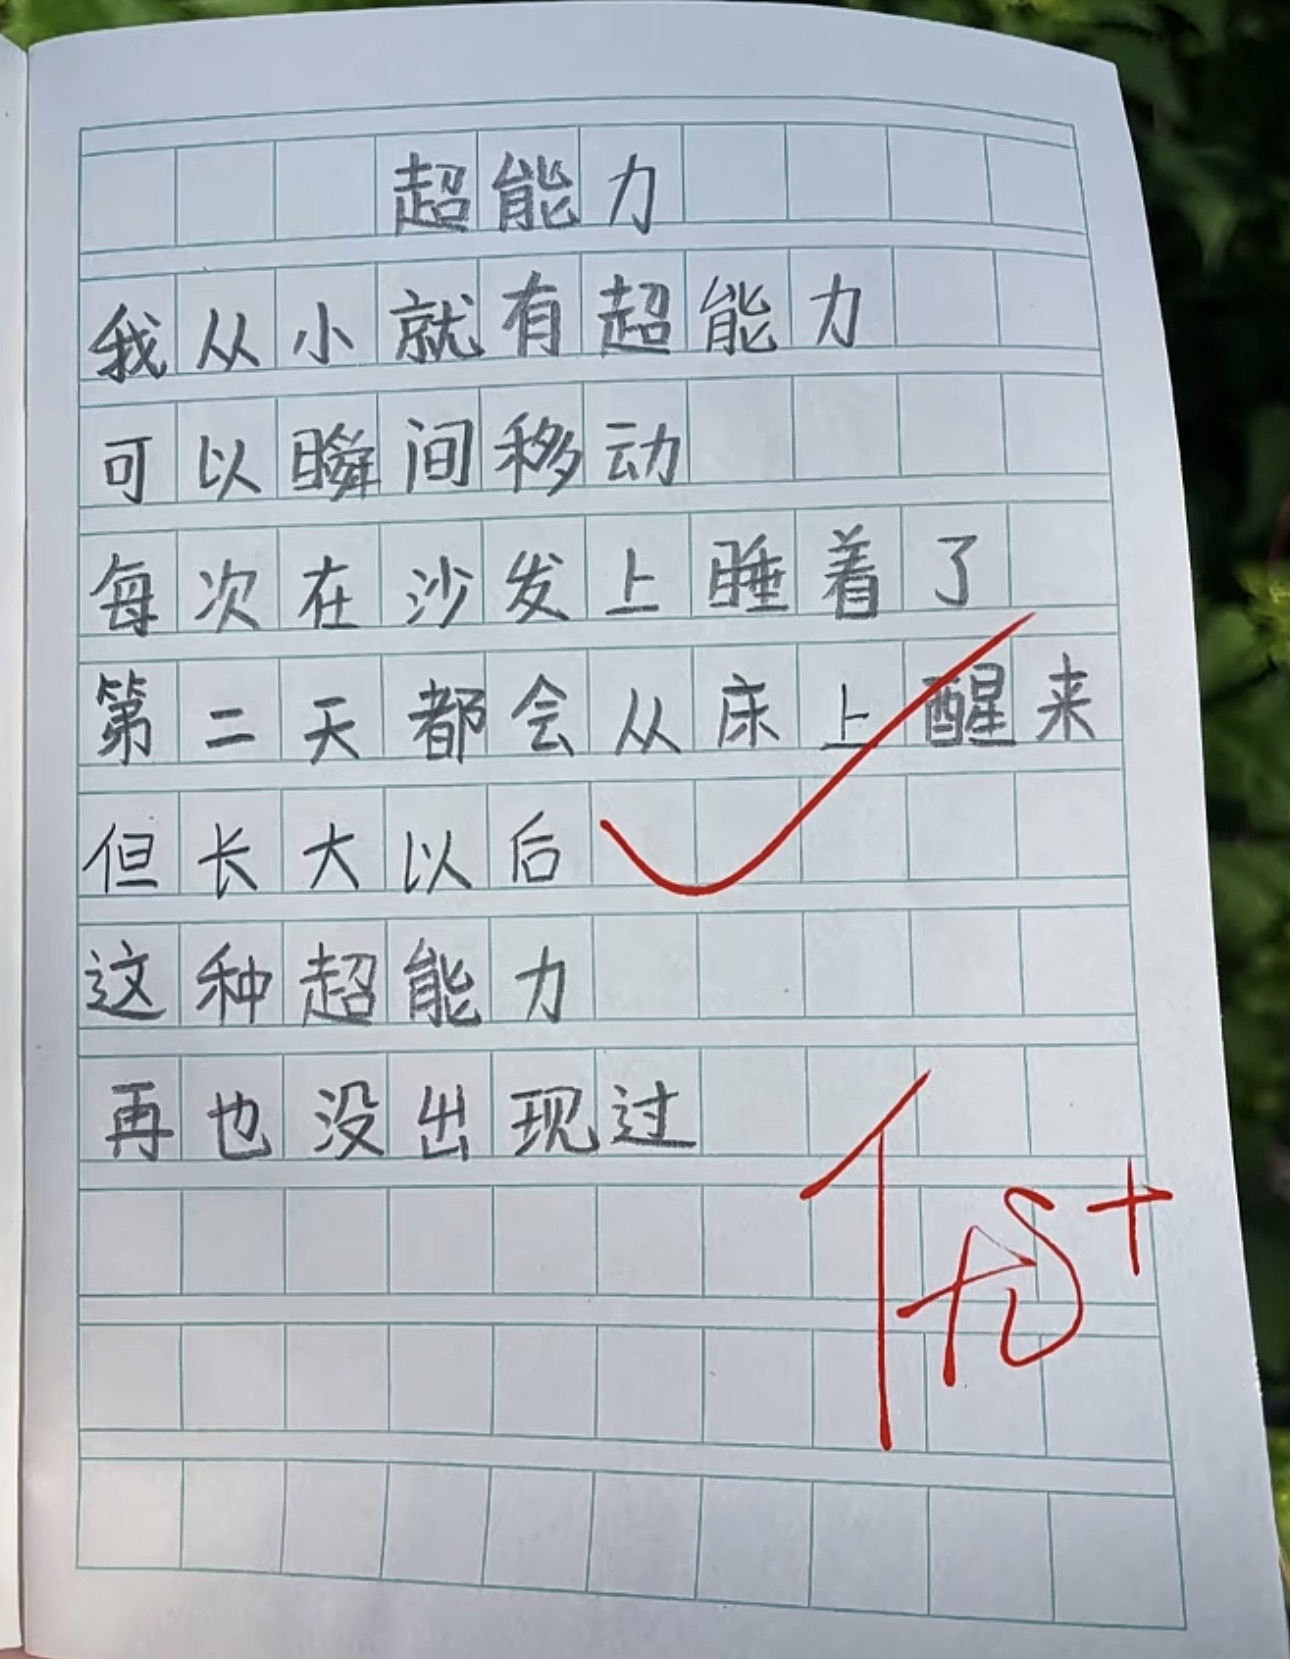 超能力
我从小就有超能力
可以瞬间移动
每次在沙发上睡着了
第二天都会从床上醒来
但长大以后
这种超能力
再也没出现过
优+